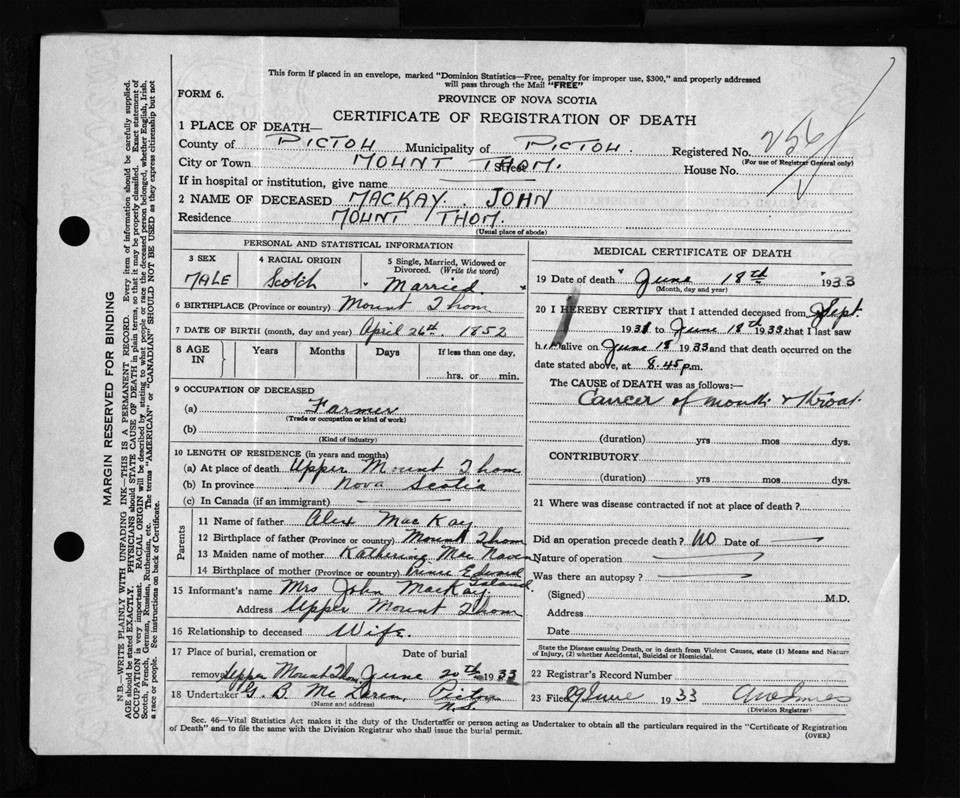 This form if placed in an envelope, marked "Dominion Statistics—Free, penalty for improper use, $300," and properly addressed
will pass through the Mail "FREE"
FORM 6.
PROVINCE OF NOVA SCOTIA
CERTIFICATE OF REGISTRATION OF DEATH
1 PLACE OF DEATH—
County of PICTOU Municipality of PICTOU. Registered No. 256
(For use of Registrar General only)
City or Town MOUNT THOM. Street House No.
If in hospital or institution, give name
2 NAME OF DECEASED MACKAY. JOHN
Residence MOUNT THOM.
(Usual place of abode)
PERSONAL AND STATISTICAL INFORMATION
3 SEX
MALE
4 RACIAL ORIGIN
Scotch
5 Single, Married, Widowed or
Divorced. (Write the word)
" Married "
6 BIRTHPLACE (Province or country) Mount Thom
7 DATE OF BIRTH (month, day and year) April 26th. 1852
8 AGE IN
Years Months Days If less than one day,
hrs. or min.
9 OCCUPATION OF DECEASED
(a) Farmer
(Trade or occupation or kind of work)
(b)
(Kind of industry)
10 LENGTH OF RESIDENCE (in years and months)
(a) At place of death Upper Mount Thom
(b) In province Nova Scotia
(c) In Canada (if an immigrant)
Parents
11 Name of father Alex MacKay
12 Birthplace of father (Province or country) Mount Thom
13 Maiden name of mother Katherine Mac
14 Birthplace of mother (Province or country) Prince Edward
Island.
15 Informant's name Mrs John MacKay
Address Upper Mount Thom
16 Relationship to deceased Wife.
17 Place of burial, cremation or
removal Upper Mount Thom
Date of burial
June 20th 1933
18 Undertaker G. B. McLaren, Pictou
N.S.
(Name and address)
MEDICAL CERTIFICATE OF DEATH
19 Date of death " June 18th " 1933
(Month, day and year)
20 I HEREBY CERTIFY that I attended deceased from Sept.
1931 to June 18th 1933 that I last saw
him alive on June 18 1933 and that death occurred on the
date stated above, at 8.45 p.m.
The CAUSE of DEATH was as follows:—
Cancer of mouth & throat.
(duration) yrs mos dys.
CONTRIBUTORY
(duration) yrs mos dys.
21 Where was disease contracted if not at place of death?
Did an operation precede death? No Date of
Nature of operation
Was there an autopsy?
(Signed) M.D.
Address
Date
State the Disease causing Death, or in death from Violent Causes, state (1) Means and Nature
of Injury, (2) whether Accidental, Suicidal or Homicidal.
22 Registrar's Record Number
23 Filed 29 June 1933
(Division Registrar)
Sec. 46—Vital Statistics Act makes it the duty of the Undertaker or person acting as Undertaker to obtain all the particulars required in the "Certificate of Registration
of Death" and to file the same with the Division Registrar who shall issue the burial permit.
(OVER)
MARGIN RESERVED FOR BINDING
N.B.—WRITE PLAINLY WITH UNFADING INK—THIS IS A PERMANENT RECORD. Every item of information should be carefully supplied.
AGE should be stated EXACTLY. PHYSICIANS should STATE CAUSE OF DEATH in plain terms, so that it may be properly classified. Exact statement of
OCCUPATION is very important. RACIAL ORIGIN will be described by stating to what people or race the deceased person belonged, whether English, Irish,
Scotch, French, German, Russian, Ruthenian, etc. The terms "AMERICAN" or "CANADIAN" SHOULD NOT BE USED as they express citizenship but not
a race or people. See instructions on back of Certificate.